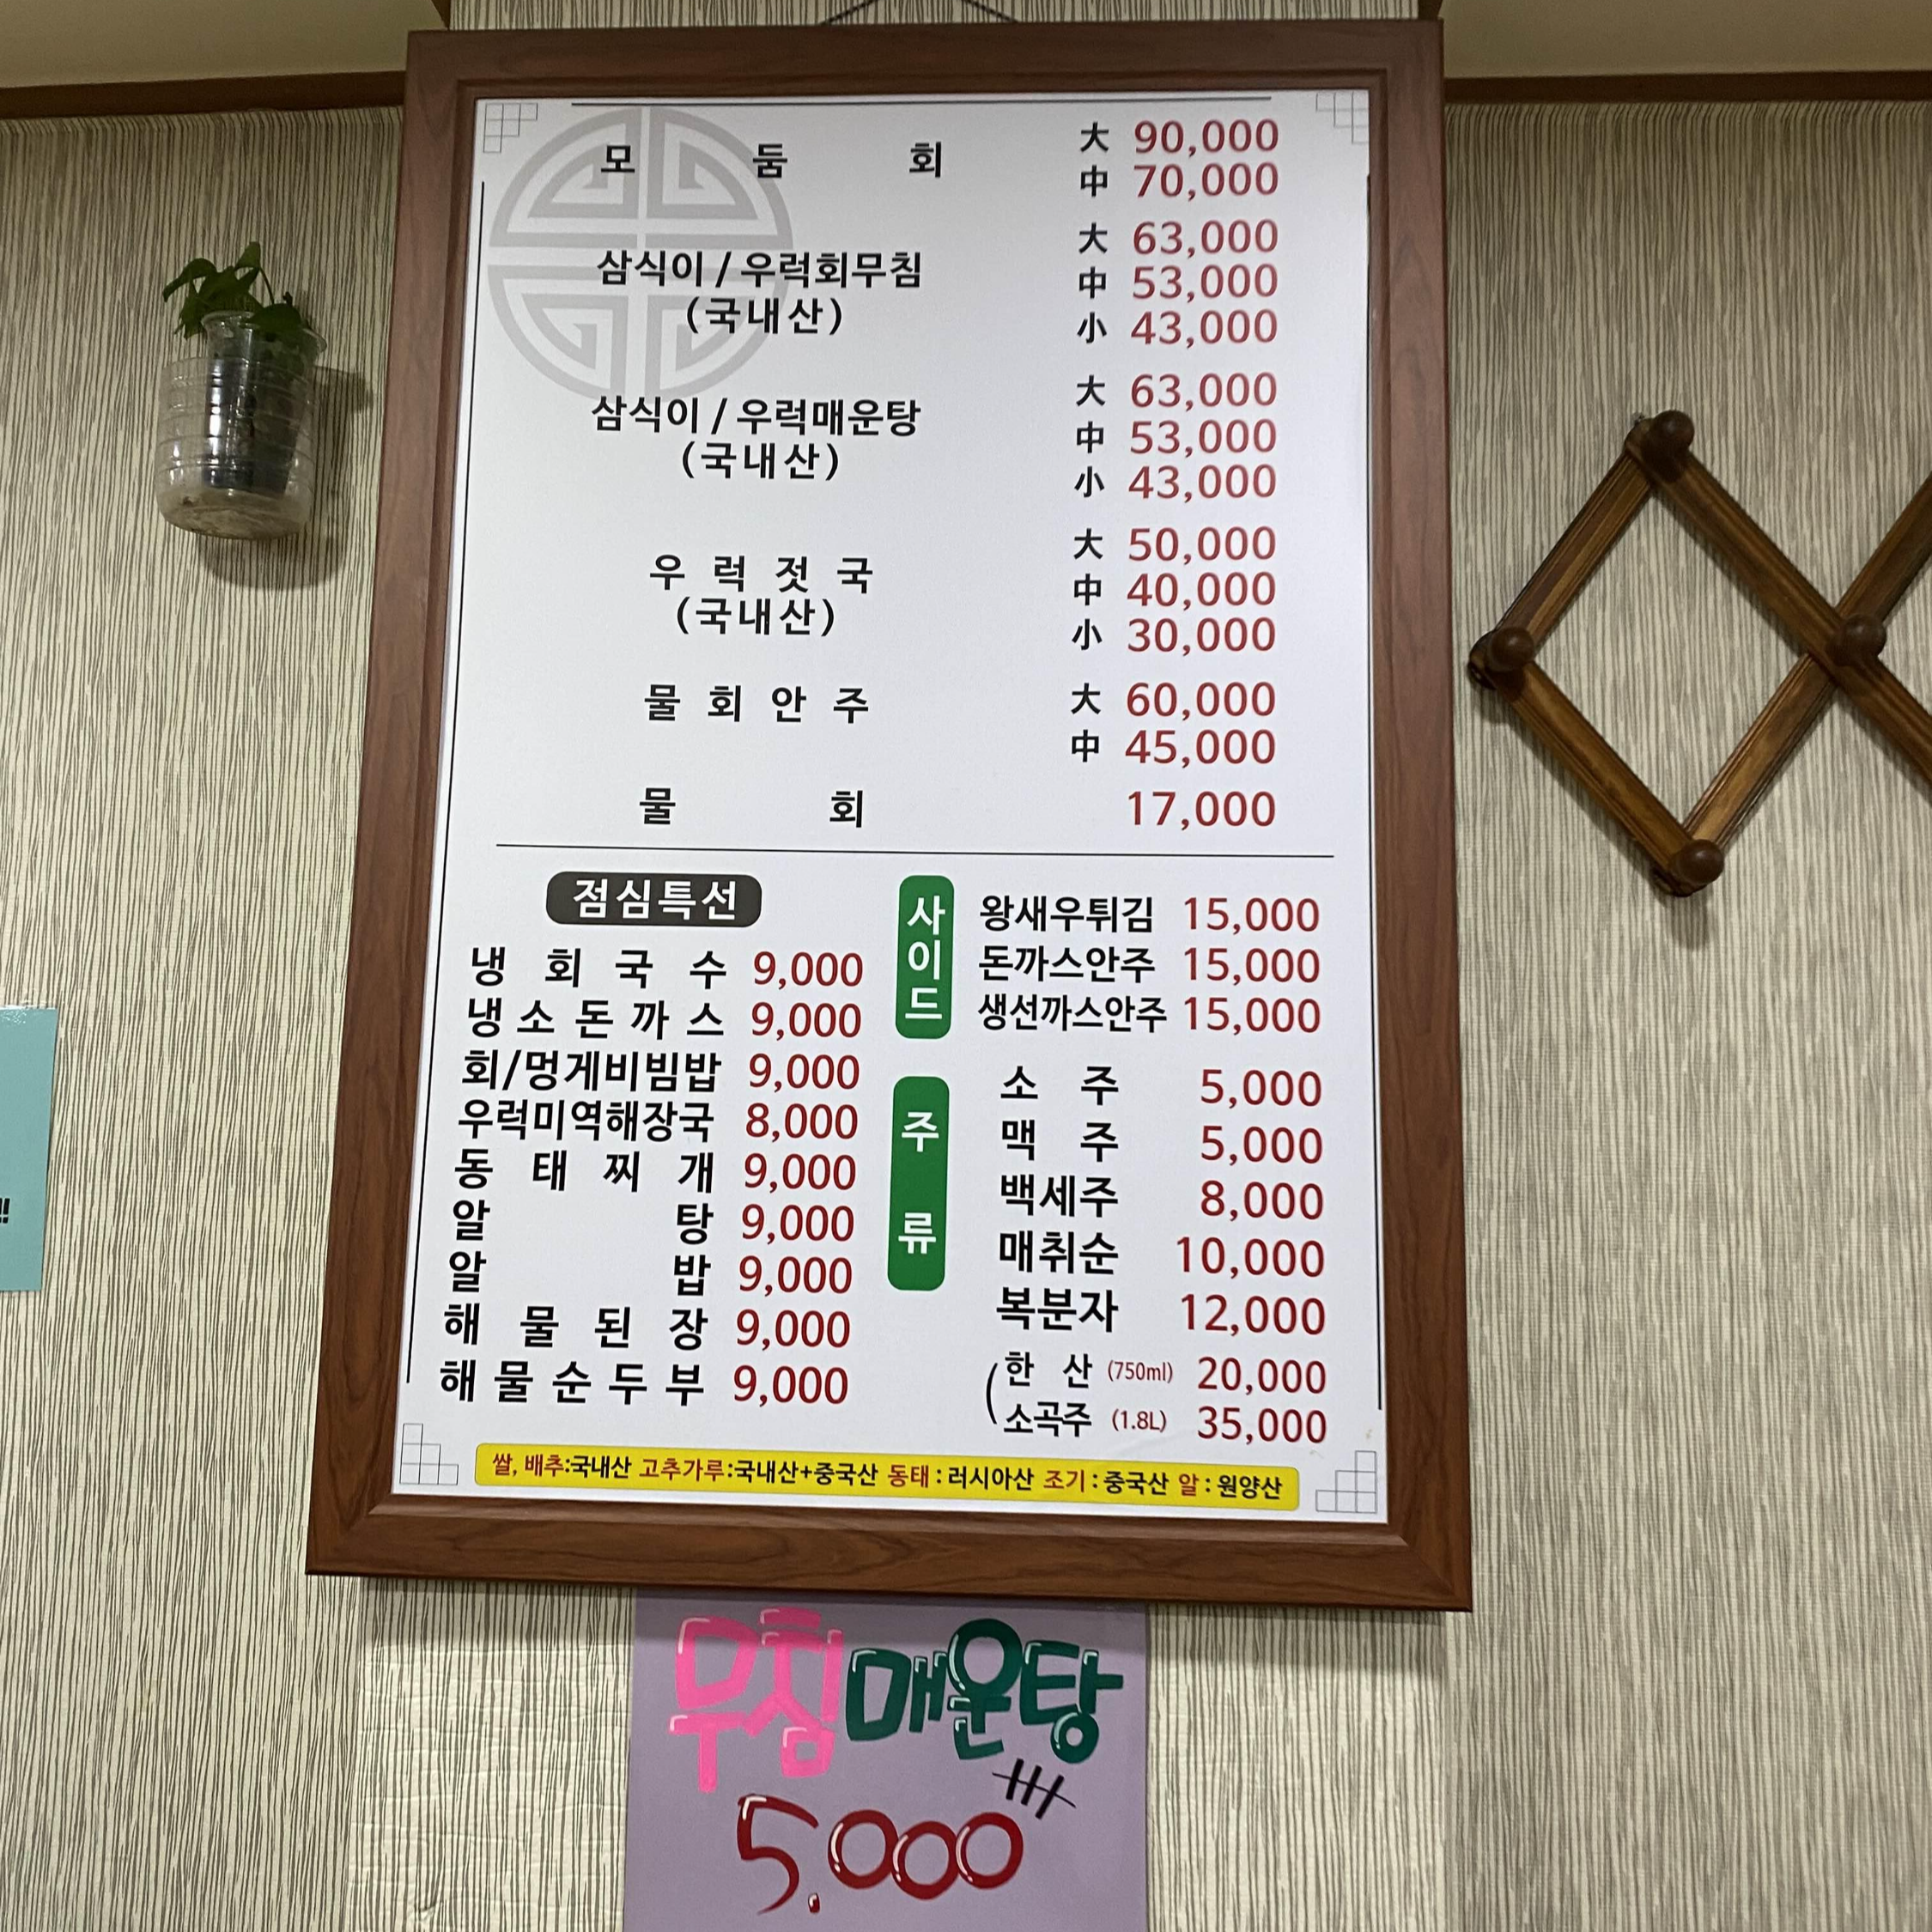 모 둠 회
大 90,000
中 70,000
삼식이 / 우럭회무침
(국내산)
大 63,000
中 53,000
小 43,000
삼식이 / 우럭매운탕
(국내산)
大 63,000
中 53,000
小 43,000
우 럭 젓 국
(국내산)
大 50,000
中 40,000
小 30,000
물 회 안 주
大 60,000
中 45,000
물 회 17,000
점심특선
냉 회 국 수 9,000
냉 소 돈 까 스 9,000
회/멍게비빔밥 9,000
우럭미역해장국 8,000
동 태 찌 개 9,000
알 탕 9,000
알 밥 9,000
해 물 된 장 9,000
해 물 순 두 부 9,000
사이드
왕새우튀김 15,000
돈까스안주 15,000
생선까스안주 15,000
주류
소 주 5,000
맥 주 5,000
백세주 8,000
매취순 10,000
복분자 12,000
한 산 (750ml) 20,000
소곡주 (1.8L) 35,000
쌀, 배추:국내산 고추가루:국내산+중국산 동태 : 러시아산 조기 : 중국산 알 : 원양산
무침매운탕
5,000
!!